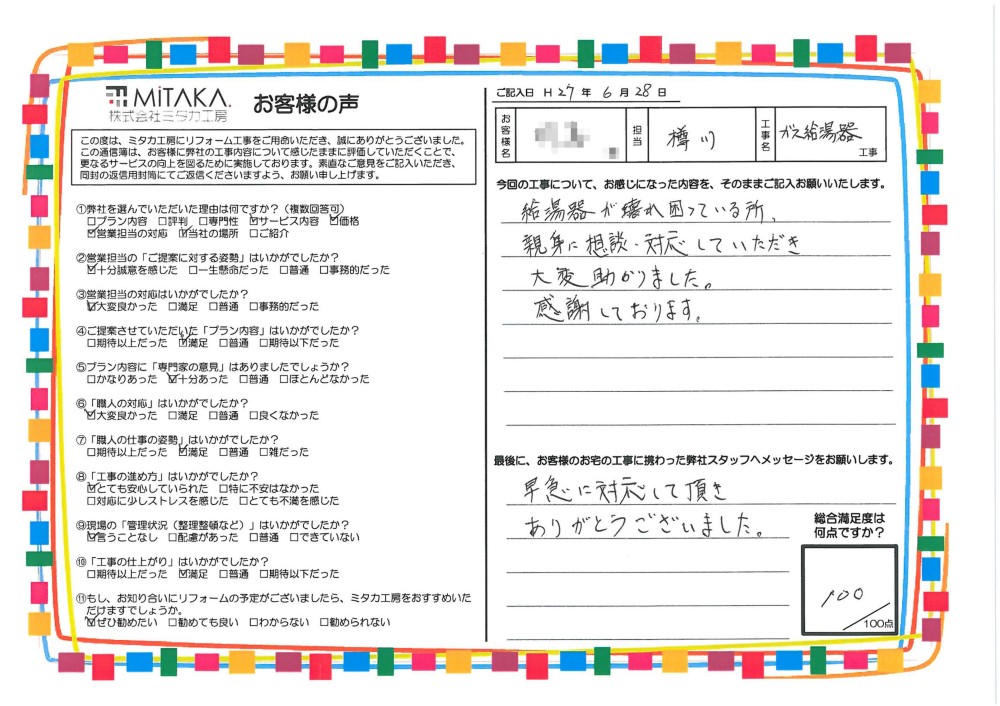 MiTAKA.
株式会社ミタカ工房
お客様の声
この度は、ミタカ工房にリフォーム工事をご用命いただき、誠にありがとうございました。
この通信簿は、お客様に弊社の工事内容について感じたままに評価していただくことで、
更なるサービスの向上を図るために実施しております。素直なご意見をご記入いただき、
同封の返信用封筒にてご返信くださいますよう、お願い申し上げます。
①弊社を選んでいただいた理由は何ですか?(複数回答可)
□プラン内容 □評判 □専門性 ☑サービス内容 ☑価格
☑営業担当の対応 ☑当社の場所 □ご紹介
②営業担当の「ご提案に対する姿勢」はいかがでしたか?
☑十分誠意を感じた □一生懸命だった □普通 □事務的だった
③営業担当の対応はいかがでしたか?
☑大変良かった □満足 □普通 □事務的だった
④ご提案させていただいた「プラン内容」はいかがでしたか?
□期待以上だった ☑満足 □普通 □期待以下だった
⑤プラン内容に「専門家の意見」はありましたでしょうか?
□かなりあった ☑十分あった □普通 □ほとんどなかった
⑥「職人の対応」はいかがでしたか?
☑大変良かった □満足 □普通 □良くなかった
⑦「職人の仕事の姿勢」はいかがでしたか?
□期待以上だった ☑満足 □普通 □雑だった
⑧「工事の進め方」はいかがでしたか?
☑とても安心していられた □特に不安はなかった
□対応に少しストレスを感じた □とても不満を感じた
⑨現場の「管理状況(整理整頓など)」はいかがでしたか?
☑言うことなし □配慮があった □普通 □できていない
⑩「工事の仕上がり」はいかがでしたか?
□期待以上だった ☑満足 □普通 □期待以下だった
⑪もし、お知り合いにリフォームの予定がございましたら、ミタカ工房をおすすめいた
だけますでしょうか。
☑ぜひ勧めたい □勧めても良い □わからない □勧められない
ご記入日 H 27 年 6 月 28 日
お客様名
担当 樽川
工事名 ガス給湯器 工事
今回の工事について、お感じになった内容を、そのままご記入お願いいたします。
給湯器が壊れ困っている所、
親身に想談・対応していただき
大変助かりました。
感謝しております。
最後に、お客様のお宅の工事に携わった弊社スタッフへメッセージをお願いします。
早急に対応して頂き
ありがとうございました。
総合満足度は
何点ですか?
100
/100点